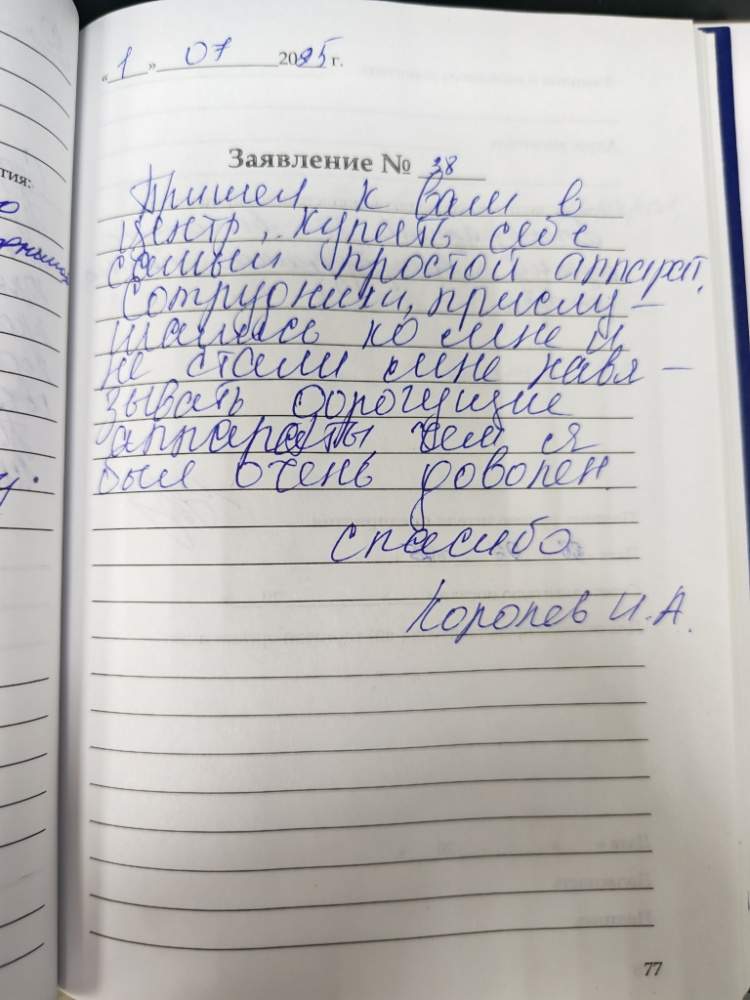 « 1 » 07 2025 г.
Заявление № 38
Пришел к вам в
центр, купить себе
самый простой аппарат.
Сотрудники, прислу-
шались ко мне и
не стали мне навя-
зывать дорогущие
аппараты чем я
был очень доволен.
спасибо
Королев И.А.
77
тия: